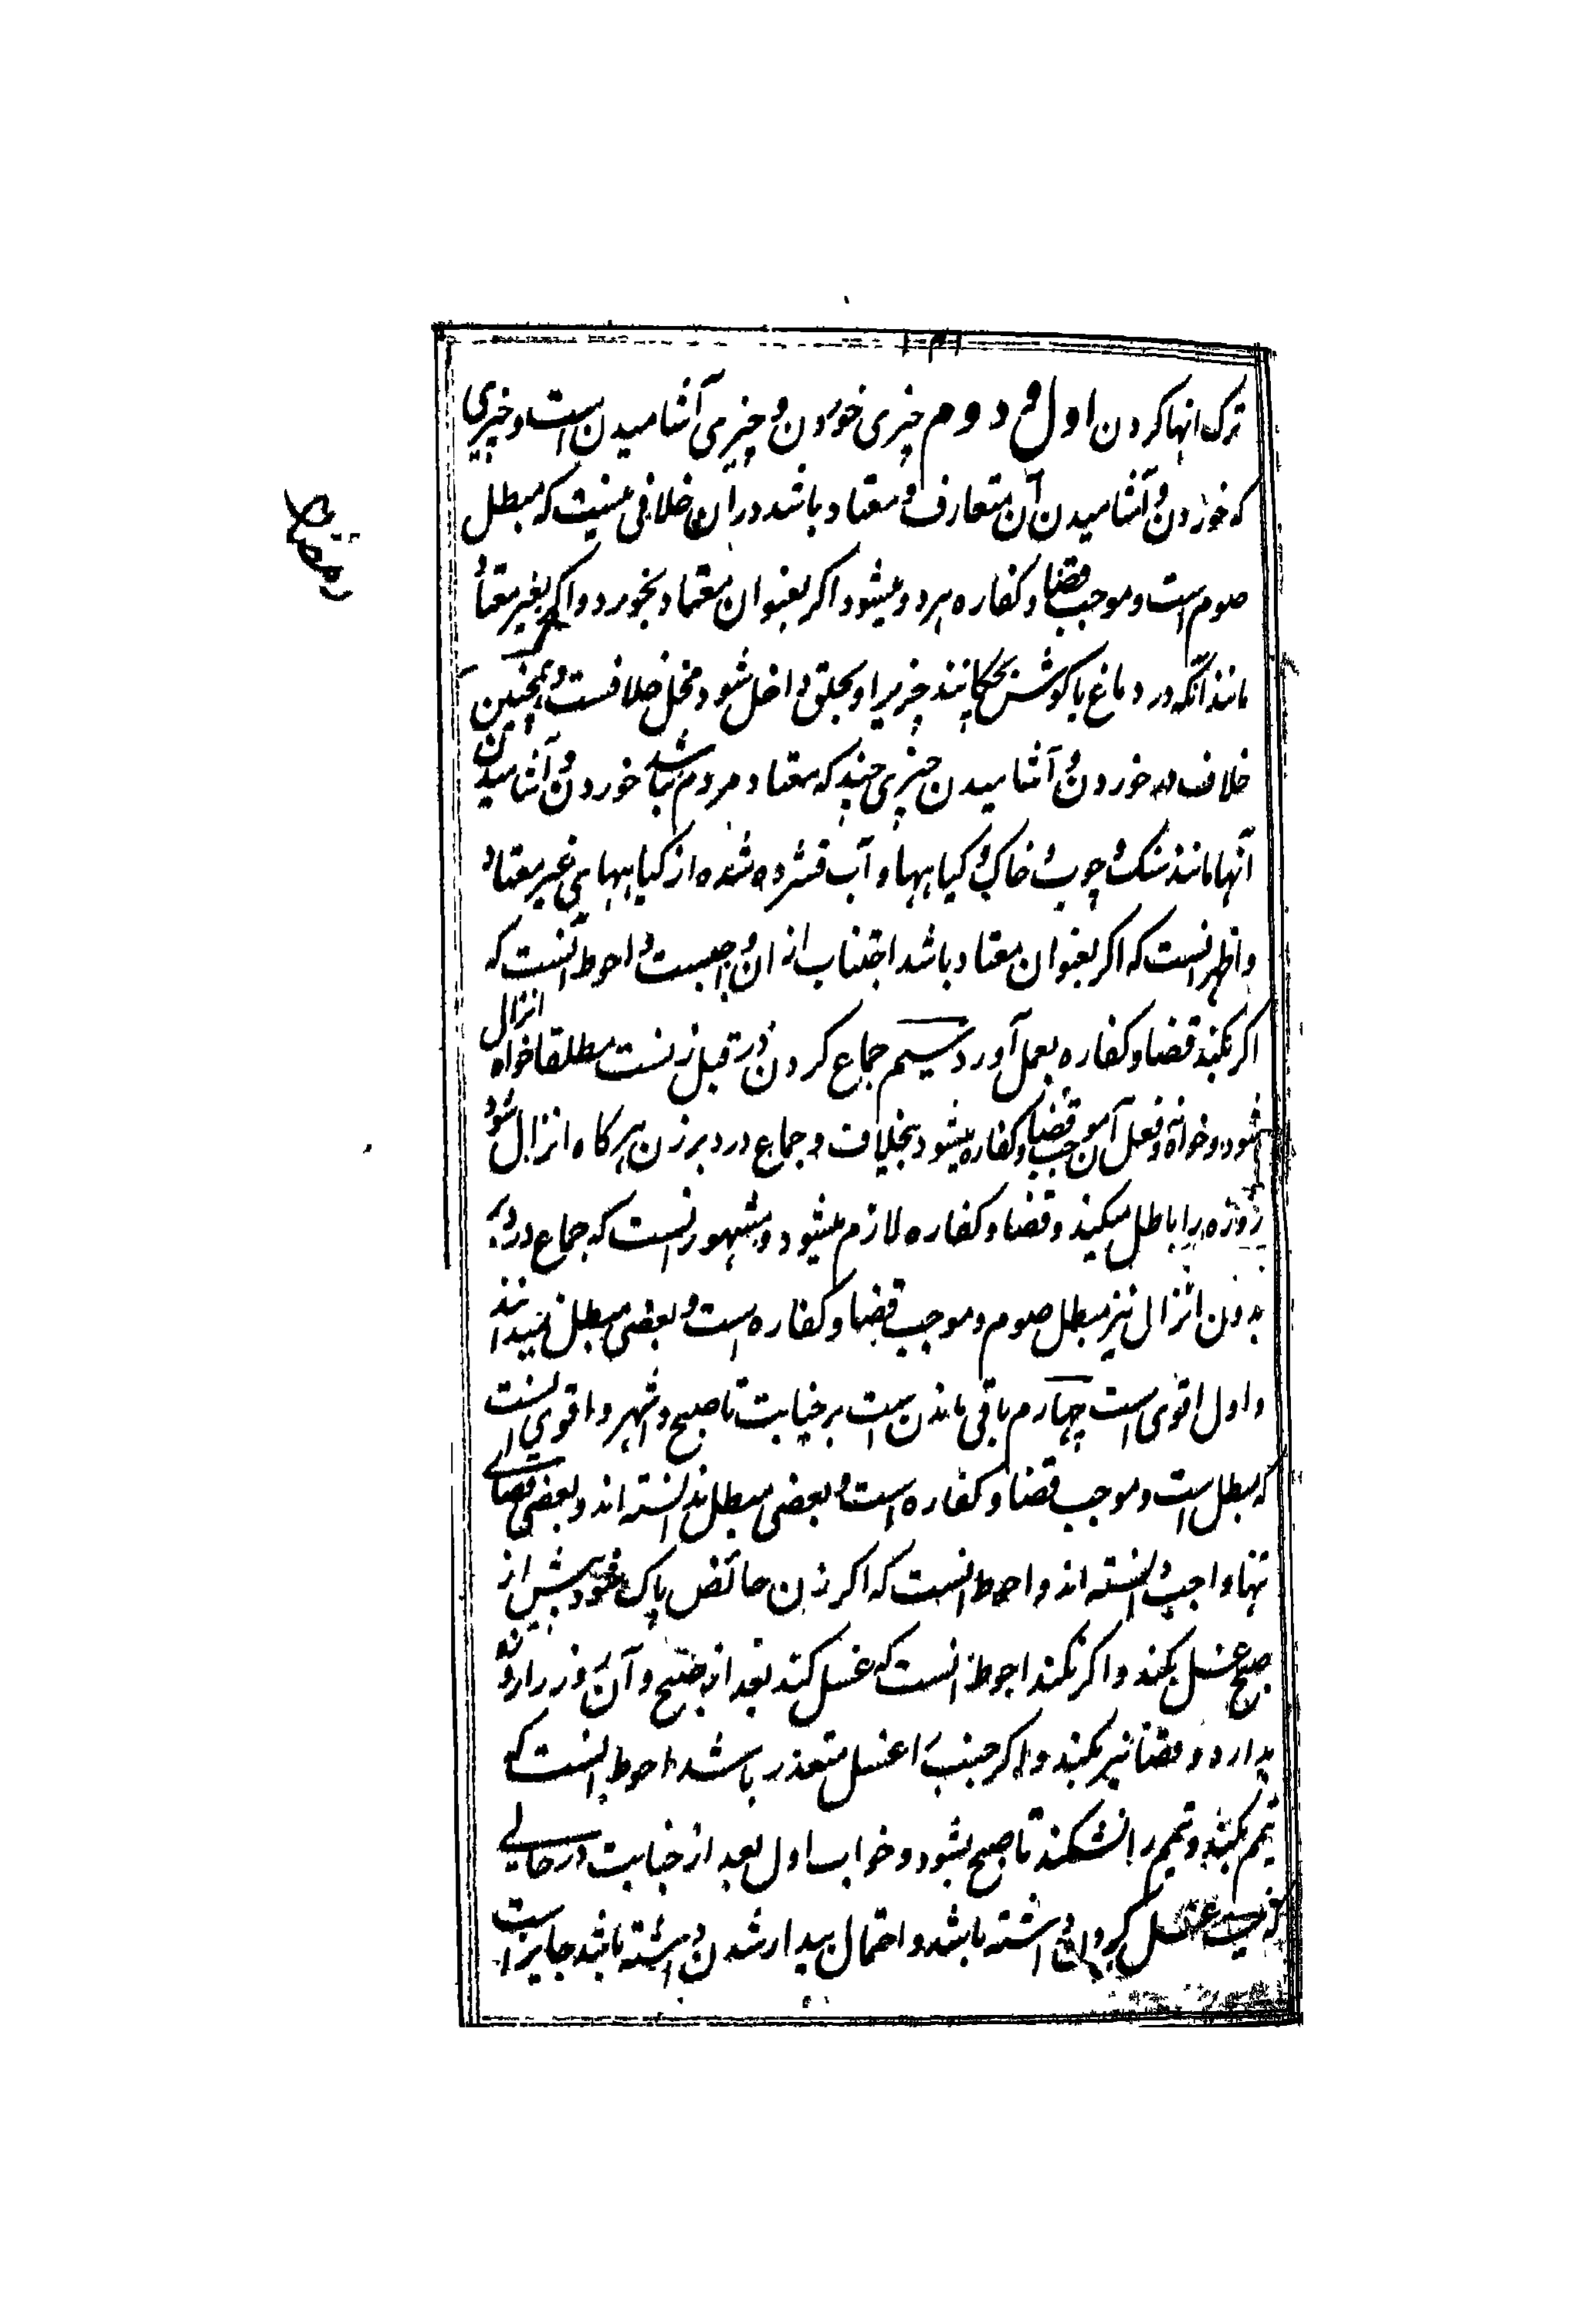 ترک انها کردن اول و دوم چیزی خوردن و چیزی آشامیدن است و چیزی
که خوردن و آشامیدن آن متعارف و معتاد باشد در آن خلافی نیست که مبطل
صوم است و موجب قضا و کفاره هر دو میشود اکر بعنوان معتاد بخورد و اکر بغیر معتاد
مانند آنکه در دماغ یا کوش بچکانند چیزیرا و بحلق داخل شود محل خلافست و همچنین
خلافست در خوردن و آشامیدن چیزی چند که معتاد مردم نباشد خوردن و آشامیدن
آنها مانند سنک و چوب و خاک و کیاهها و آب فشرده شده از کیاههای غیر معتاد
و اظهر انست که اکر بعنوان معتاد باشد اجتناب از ان واجبست و احوط آنست که
اکر نکند قضا و کفاره بعمل آورد سیم جماع کردن در قبل زنست مطلقا خواه انزال
شود و خواه نه و فعل آن موجب قضا و کفاره میشود بیخلاف و جماع در دبر زن هرکاه انزال شود
روزه را باطل میکند و قضا و کفاره لازم میشود و مشهور انست که جماع در دبر
بدون انزال نیز مبطل صوم و موجب قضا و کفاره است و بعضی مبطل نمیدانند
و اول اقوی است چهارم باقی ماندن است بر جنابت تا صبح و اشهر و اقوی انست
که مبطل است و موجب قضا و کفاره است و بعضی مبطل ندانسته اند و بعضی قضای
تنها واجب دانسته اند و احوط انست که اکر زن حائض پاک شود پیش از
صبح غسل بکند و اکر نکند احوط انست که غسل کند بعد از صبح و آن روز را روزه
بدارد و قضا نیز بکند و اکر جنب را غسل متعذر باشد احوط انست که
تیمم بکند و تیمم را نشکند تا صبح بشود و خواب اول بعد از جنابت در حالی
که نیت غسل کردن داشته باشد و احتمال بیدار شدن داشته باشد جایز است